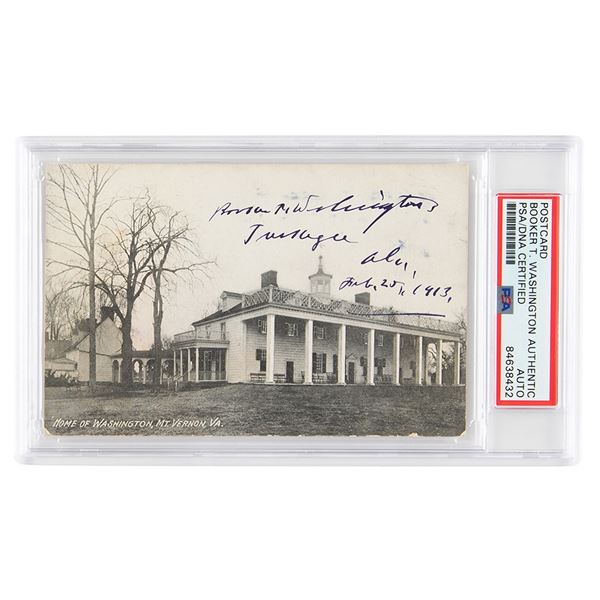 Booker T. Washington
Tuskegee
Ala.
Feb. 25, 1913,
HOME OF WASHINGTON, MT. VERNON, VA.
POSTCARD
BOOKER T. WASHINGTON AUTHENTIC
AUTO
PSA/DNA CERTIFIED
PSA
84638432